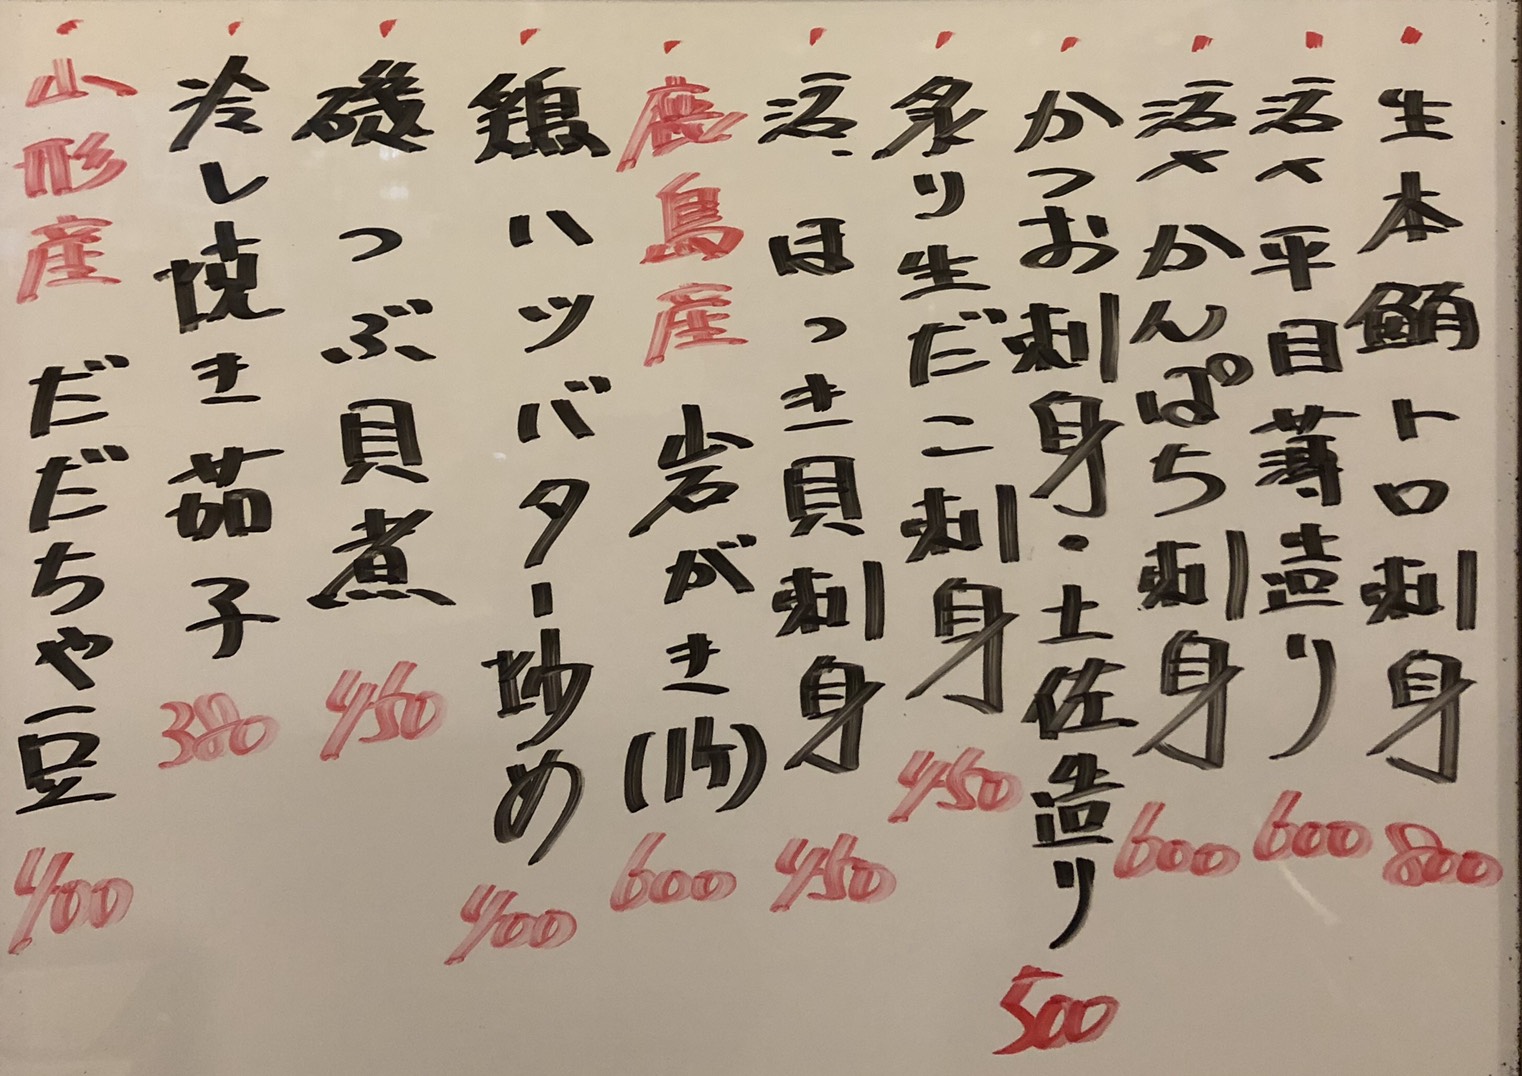 ・生本鮪トロ刺身 800
・活〆平目薄造り 600
・活〆かんぱち刺身 600
・かつお刺身・土佐造り 500
・炙り生だこ刺身 450
・活ほっき貝刺身 450
・鹿島産 岩がき(1ケ) 600
・鶏ハツバター炒め 400
・磯つぶ貝煮 450
・冷し焼き茄子 380
・山形産 だだちゃ豆 400